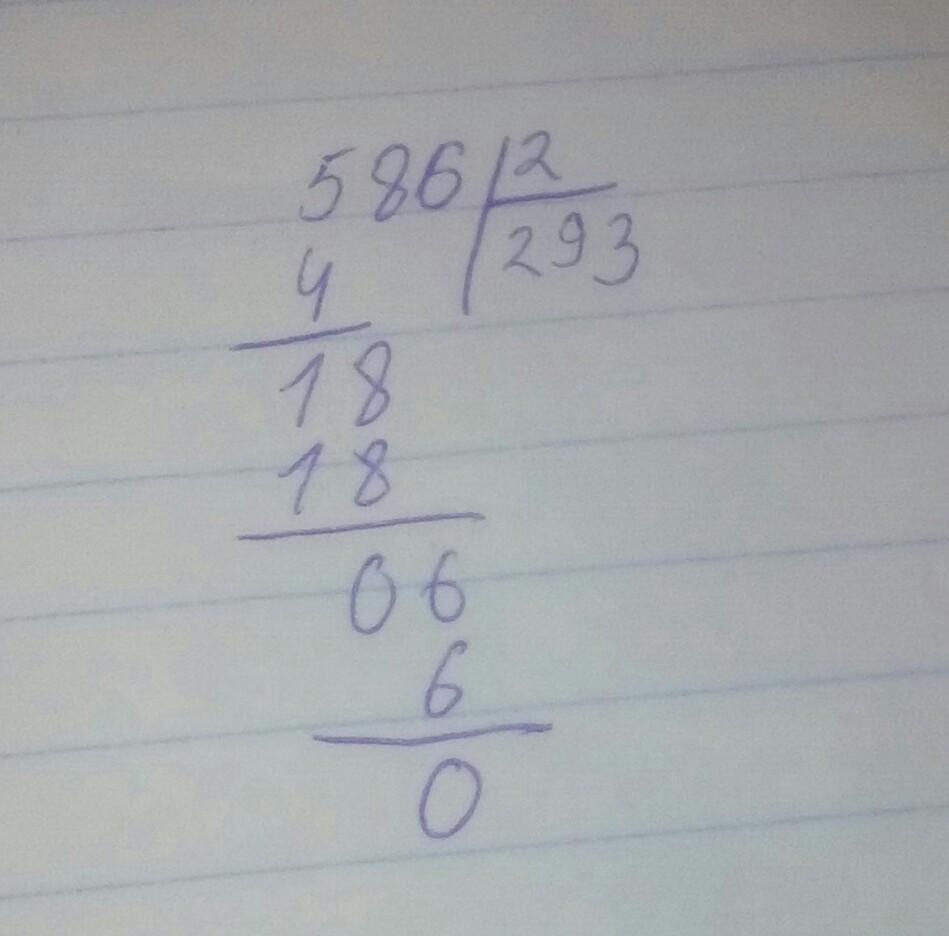 586 2
293
4
18
18
06
6
0